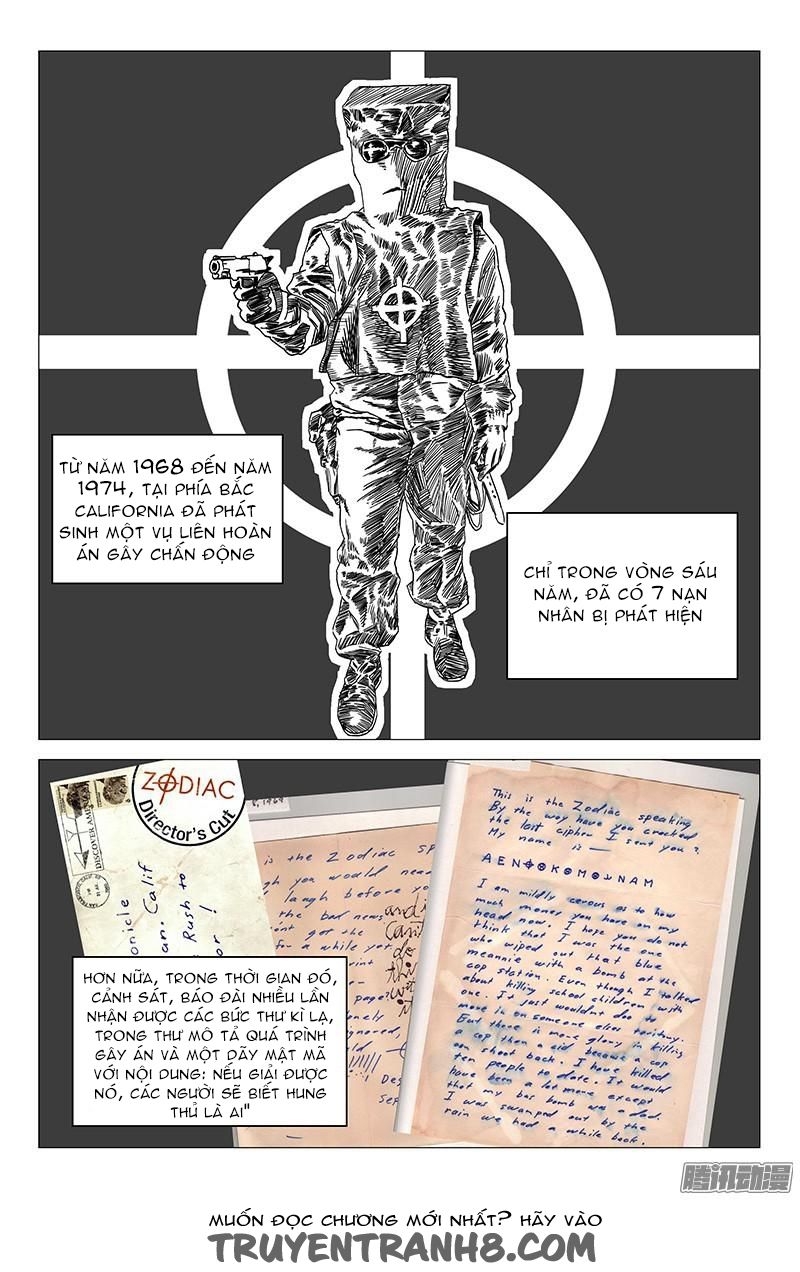 TỪ NĂM 1968 ĐẾN NĂM
1974, TẠI PHÍA BẮC
CALIFORNIA ĐÃ PHÁT
SINH MỘT VỤ LIÊN HOÀN
ÁN GÂY CHẤN ĐỘNG
CHỈ TRONG VÒNG SÁU
NĂM, ĐÃ CÓ 7 NẠN
NHÂN BỊ PHÁT HIỆN
ZODIAC
Director's Cut
DISCOVER AMERICA
onicle
an. Calif
Rush to
or!
is the Zodiac sp
gh you would need
laugh before yo
the bad news
get the
for a while yet
page?
onely
ignored,
Des
Sep
This is the Zodiac speaking
By the way have you cracked
the last cipher I sent you?
My name is —
AEN⌖⊕K⊕M⊕⅃NAM
I am mildly cerous as to how
much money you have on my
head now. I hope you do not
think that I was the one
who wiped out that blue
meannie with a bomb at the
cop station. Even though I talked
about killing school children with
one. It just wouldnt do to
move in on someone elses teritory.
But there is more glory in killing
a cop then a cid because a cop
can shoot back. I have killed
ten people to date. It would
have been a lot more except
that my bus bomb was a dud.
I was swamped out by the
rain we had a while back.
HƠN NỮA, TRONG THỜI GIAN ĐÓ,
CẢNH SÁT, BÁO ĐÀI NHIỀU LẦN
NHẬN ĐƯỢC CÁC BỨC THƯ KÌ LẠ,
TRONG THƯ MÔ TẢ QUÁ TRÌNH
GÂY ÁN VÀ MỘT DÃY MẬT MÃ
VỚI NỘI DUNG: NẾU GIẢI ĐƯỢC
NÓ, CÁC NGƯỜI SẼ BIẾT HUNG
THỦ LÀ AI"
腾讯动漫
MUỐN ĐỌC CHƯƠNG MỚI NHẤT? HÃY VÀO
TRUYENTRANH8.COM